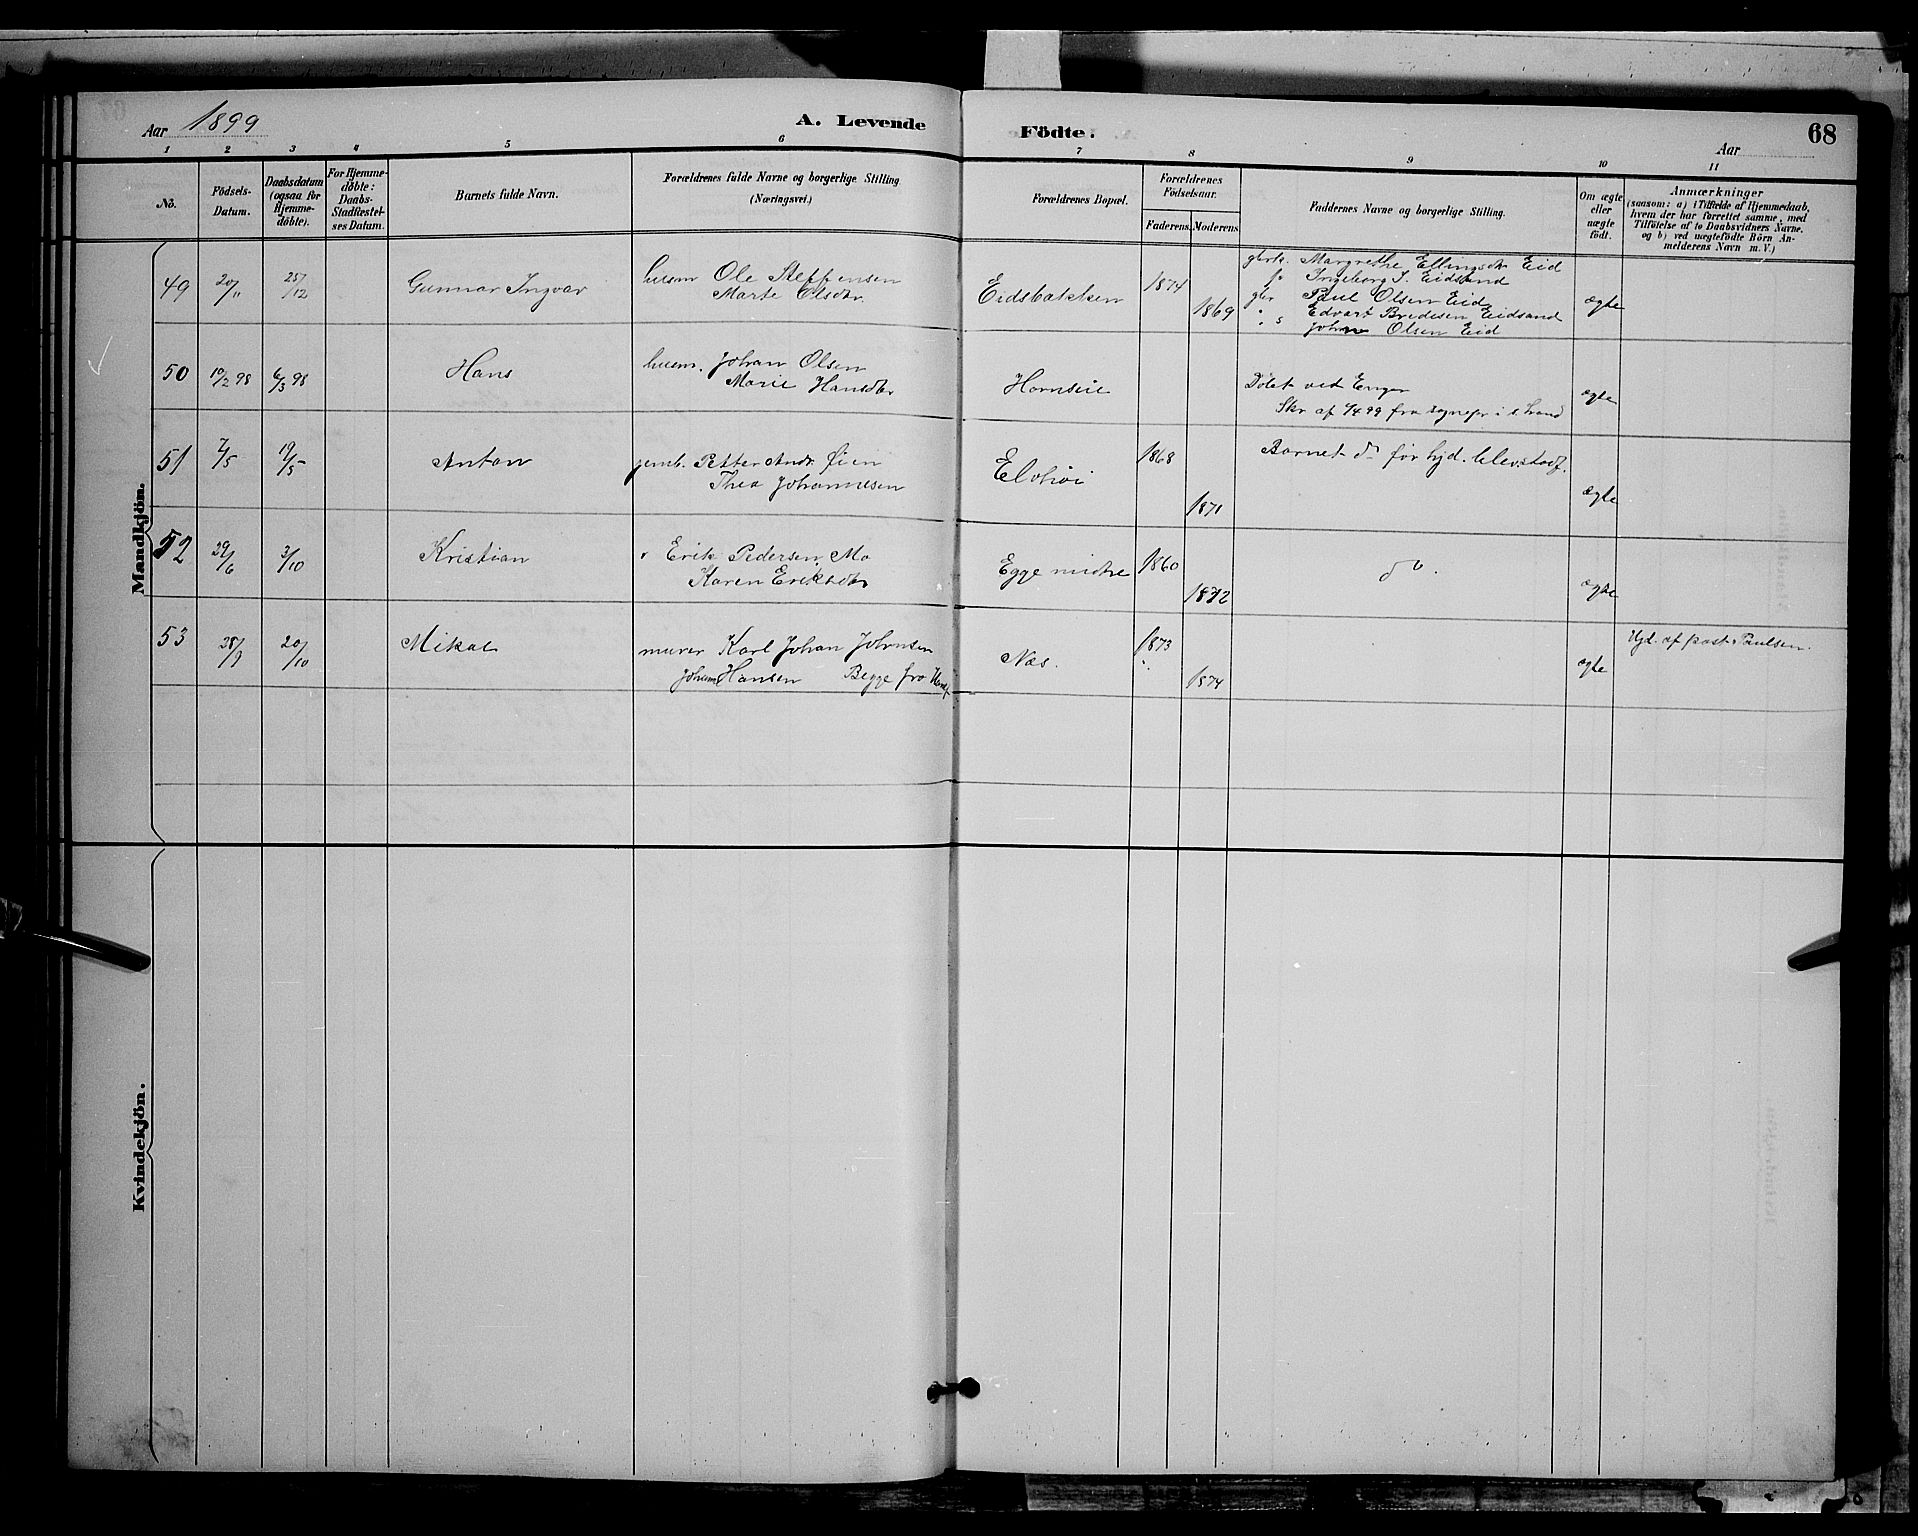 Aar 1899
A. Levende
Födte.
68
Aar
1 2 3 4 5 6 7 8 9 10 11
No.
Födsels-
Datum.
Daabsdatum
(ogsaa for
Hjemme-
döbte).
For Hjemme-
döbte:
Daabs-
Stadfæstel-
ses Datum.
Barnets fulde Navn.
Forældrenes fulde Navne og borgerlige Stilling
(Næringsvei.)
Forældrenes Bopæl.
Forældrenes
Födselsaar.
Faderens.
Moderens.
Faddernes Navne og borgerlige Stilling.
Om ægte
eller
uægte
födt.
Anmærkninger
(saasom: a) i Tilfælde af Hjemmedaab,
hvem der har forrettet samme, med
Tilföielse af to Daabsvidners Navne.
og b) ved uægtefödte Börn An-
melderens Navn m. V.)
Mandkjön.
49 20/11 25/12 Gunnar Ingvar
husm Ole Steffensen
Marte Olsdtr.
Eidsbakken 1874
1869
gbrk. Margrethe Ellingsdtr Eid
Ingeborg I. Eidsand
gbr Paul Olsen Eid
" s Edvart Bredesen Eidsand
Johan Olsen Eid
ægte
50 10/2 98 6/3 98 Hans
husm. Johan Olsen
Marie Hansdtr
Hornseie
Döbt ved Enger
Skr af 4/4 99 fra sognepr i S. Land
ægte
51 7/5 19/5 Anton
Petter Andr Øien
Thea Johannesen
1868
1871
Barnet
ægte
52 29/6 3/10 Kristian
" Erik Pedersen Mo
Karen Eriksdtr
Egge midtre 1860
1872
do.
ægte
53 28/9 20/10 Mikal
murer Karl Johan Johnsen
Hansen Begge fra
Næs. 1873
1874
ægte
Hjd. af past. Paulsen.
Kvindekjön.